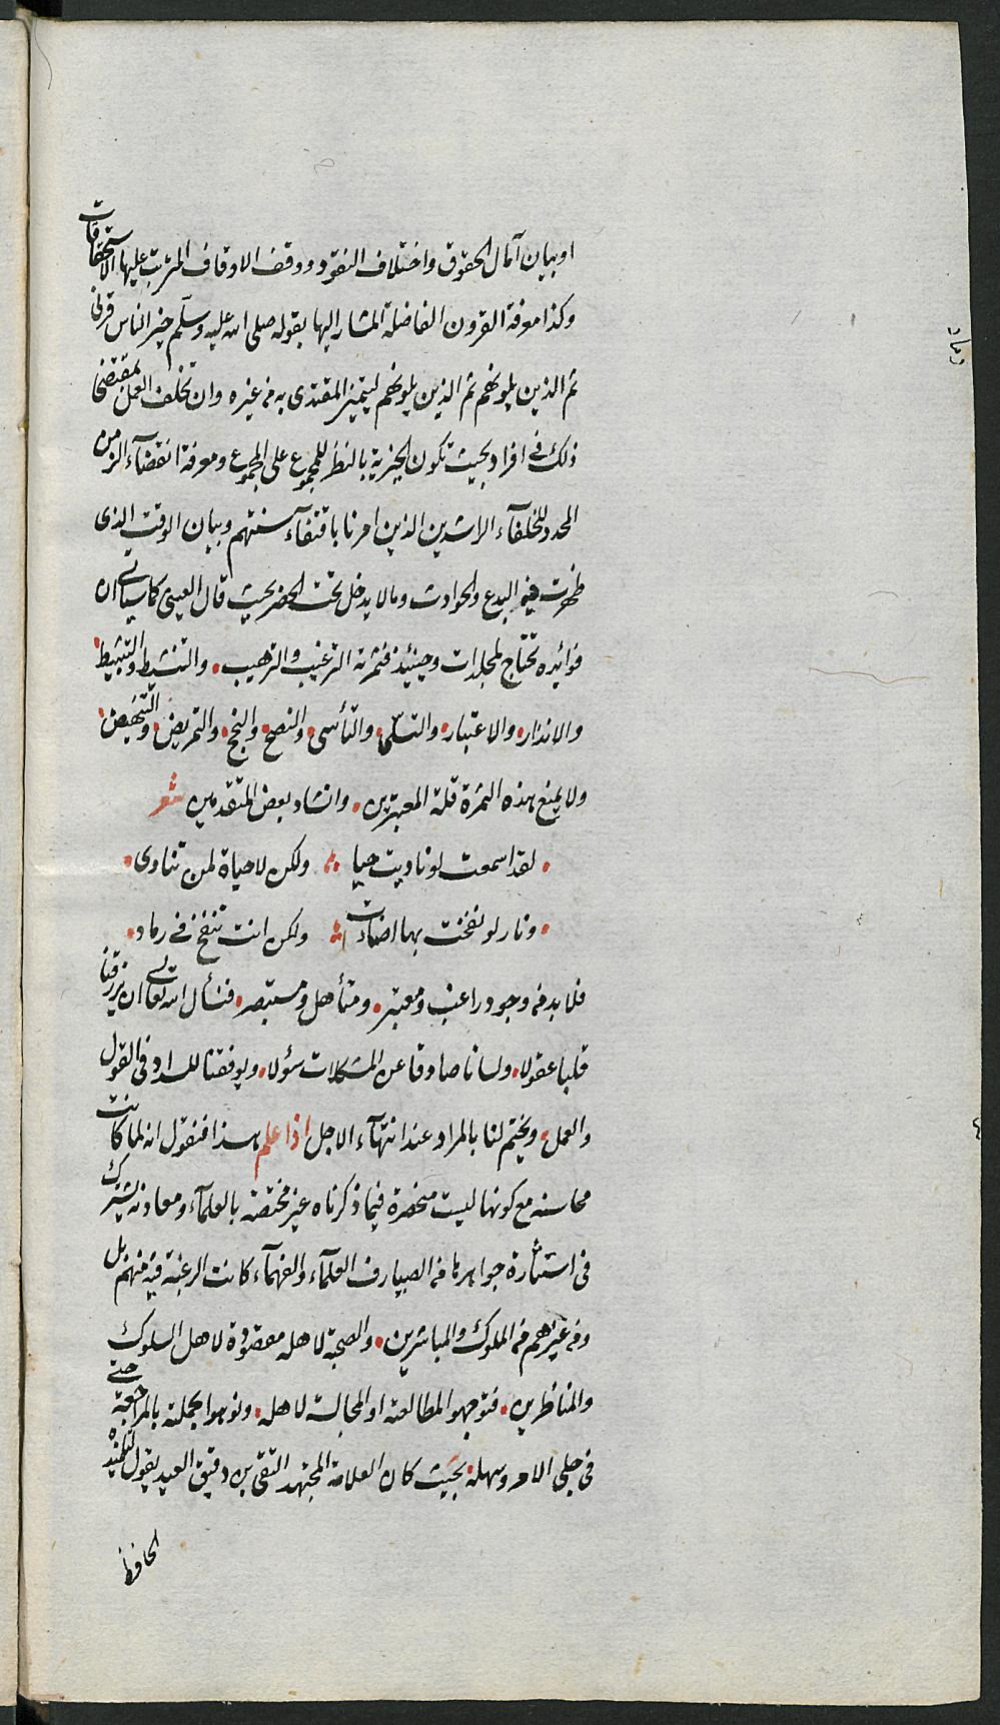 او بيان آمال الحقوق واختلاف النقود ووقف الاوقاف المترتب عليها الاستحقاقات
وكذا معرفة القرون الفاضلة المشار اليها بقوله صلى الله عليه وسلم خير الناس قرنى
ثم الذين يلونهم ثم الذين يلونهم ليتميز المقتدى به من غيره وان تخلف العمل بمقتضى
ذلك فى افراد بحيث تكون الخيرية بالنظر للمجموع على المجموع ومعرفة انقضاء الزمن
المحدد للخلفاء الراشدين الذين امرنا باقتفاء سنتهم وبيان الوقت الذى
ظهرت فيه البدع والحوادث ومالا يدخل تحت الحصر بحيث قال العينى كما سياتى ان
فوائده تحتاج لمجلدات وحينئذ فثمرته الترغيب والترهيب، والتنشيط والتثبيط،
والانذار، والاعتبار، والتسلى، والتأسى، والنصح، والنجح، والتمريض، والتنهيض،
ولا يمنع هذه الثمرة قلة المعتبرين، وانشاد بعض المتقدمين شعر
لقد اسمعت لو ناديت حيا ؞ ولكن لا حياة لمن تنادى
ونار لو نفخت بها اضاءت ؞ ولكن انت تنفخ فى رماد
فلا بد من وجود راغب ومعتبر، ومتأهل ومستبصر، فنسأل الله تعالى ان يرزقنا
قلبا عقولا، ولسانا صادقا عن المشكلات سؤلا، ويوفقنا للسداد فى القول
والعمل، ويختم لنا بالمراد عند انتهاء الاجل اذا علم هذا فنقول انه لما كانت
محاسنه مع كونها ليست منحصرة فيما ذكرناه غير مختصة بالعلماء ومعادنه يشترك
فى استثارة جواهرها من الصيارف العلماء والفهماء كانت الرغبة فيه منهم بل
ومن غيرهم من الملوك والمباشرين، والصحبة لاهله معقودة لاهل السلوك
والمناظرين، فتوجهوا لمطالعته او المجالسة لاهله، ونوهوا بحملته بالمراجعة حتى
فى جلى الامر وسهله، بحيث كان العلامة المجتهد التقى بن دقيق العيد يقول لتلميذه
الحافظ